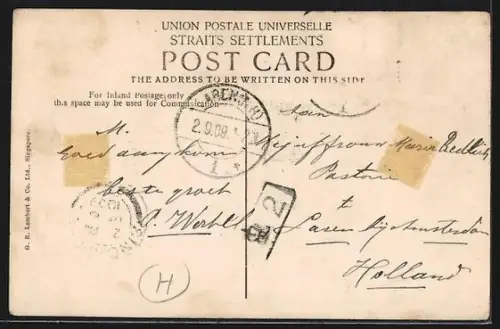 UNION POSTALE UNIVERSELLE
STRAITS SETTLEMENTS
POST CARD
THE ADDRESS TO BE WRITTEN ON THIS SIDE
For Inland Postage only
this space may be used for Communication
G. R. Lambert & Co., Ltd., Singapore.
2.9.09
M.
Goed aangekomen
beste groet
Aan
Mejuffrouw Marie
Pastorie
te
Laren bij Amsterdam
Holland
2
H